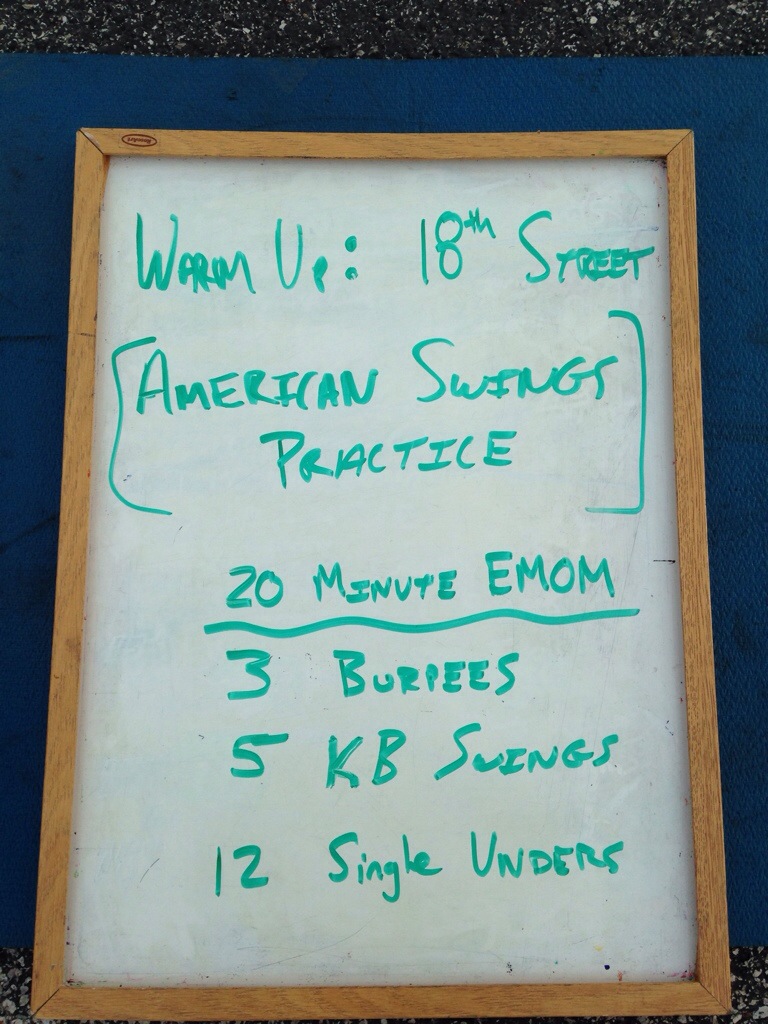 WARM UP: 18th STREET
[AMERICAN SWINGS
PRACTICE]
20 MINUTE EMOM
3 BURPEES
5 KB SWINGS
12 Single UNDERS